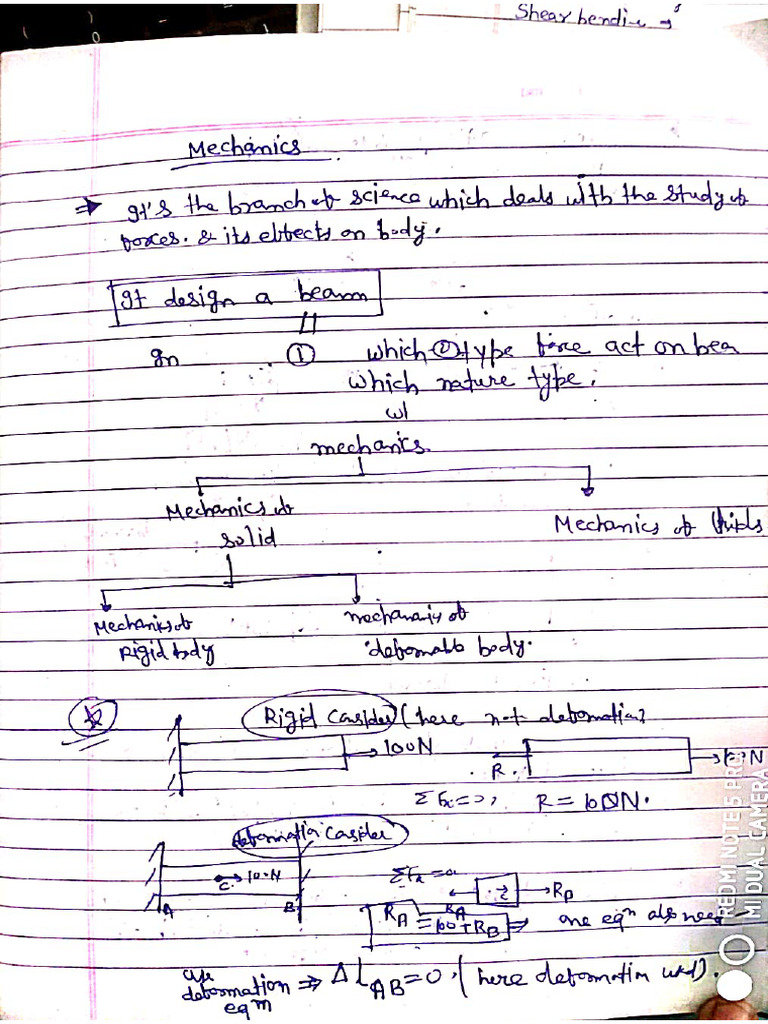 Shear bending →
Mechanics
⇒ It's the branch of science which deals with the study of
forces. & its effects on body.
If design a beam
In ① which ② type force act on bea
which nature type.
mechanics.
Mechanics of
solid
Mechanics of fluids
Mechanics of
Rigid body
mechanis of
deformable body.
Rigid Casider (here not deformation)
→ 100N
R.
ΣFx=0, R = 100N.
deformation Casider
C → 100N
A B
ΣFx=0
RA RB
RA = 100 + RB ⇒ one eqn also need
use
deformation ⇒ ΔLAB = 0. (here deformation used).
eqm
REDMI NOTE 5 PRO
MI DUAL CAMERA